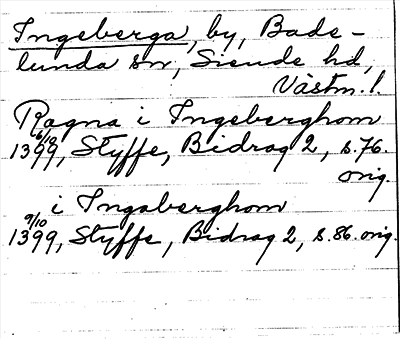 Ingeberga, by, Bade-
lunda sn, Siende hd,
Västm. l.
Ragna i Ingeberghom
6/10
1399, Styffe, Bidrag 2, s. 76.
orig.
i Ingaberghom
9/10
1399, Styffe, Bidrag 2, s. 86. orig.